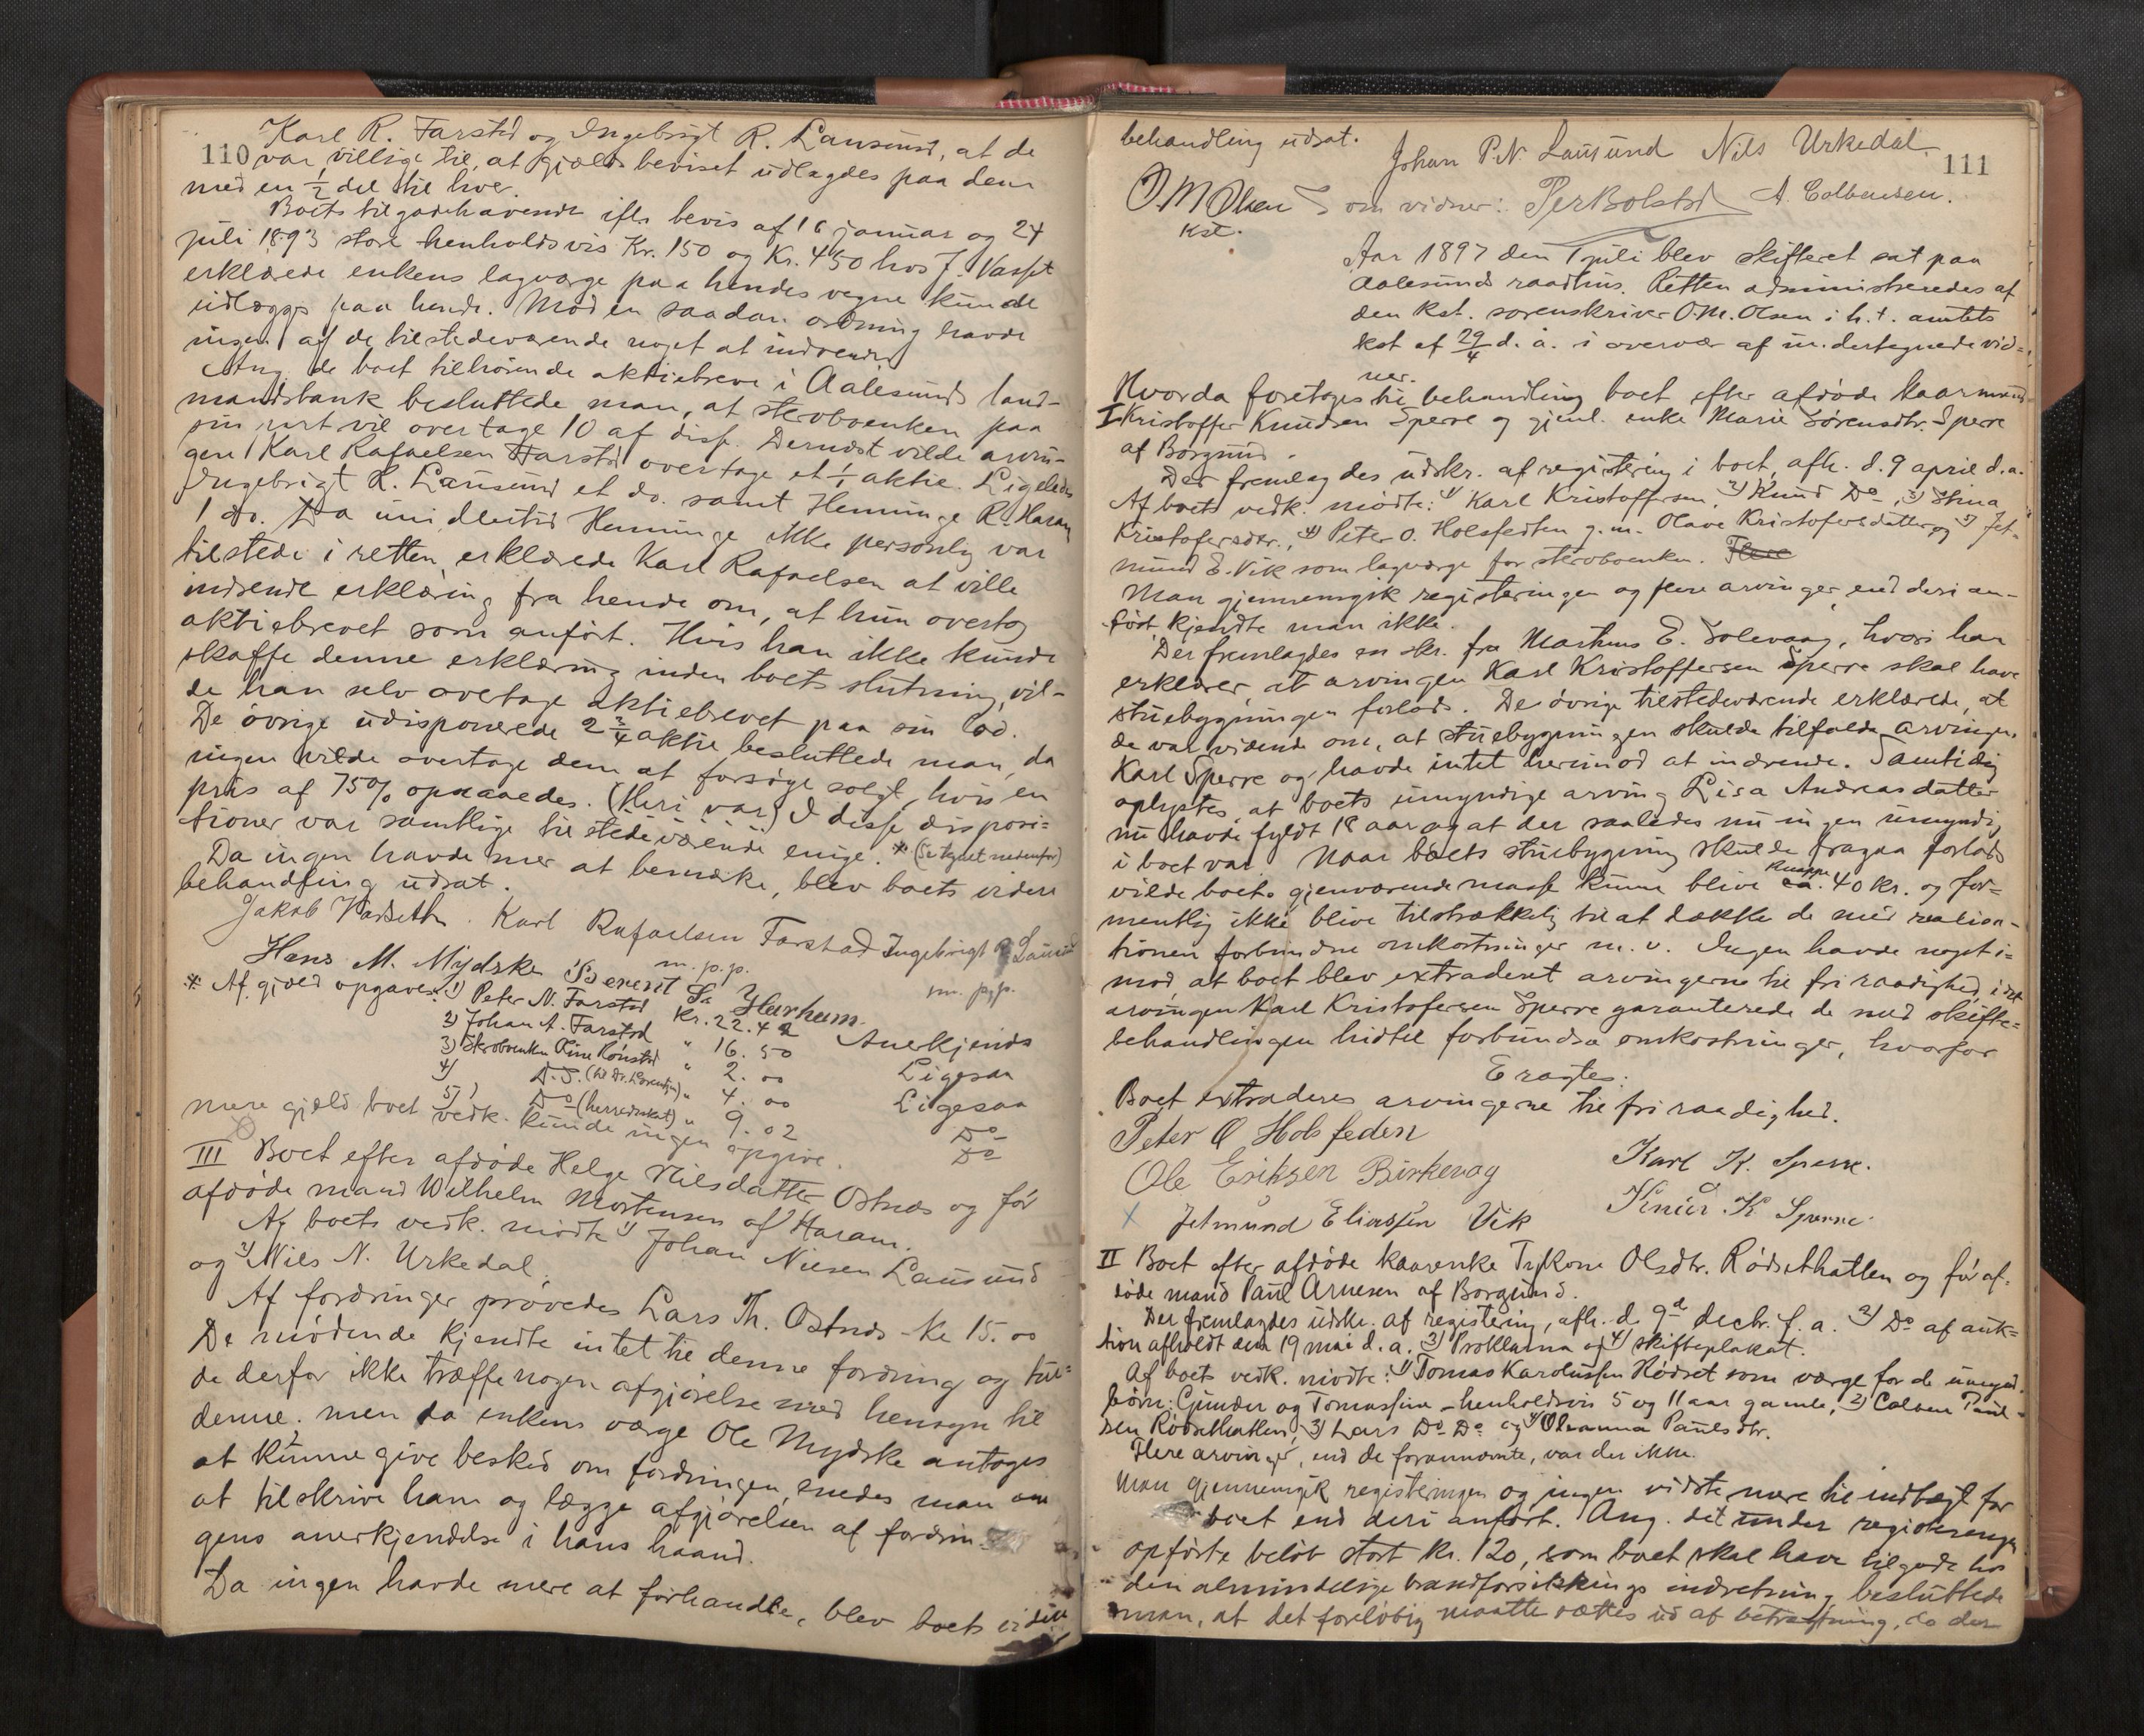 110
Karl R. Farstd og Ingebrigt R. Lausund, at de
var villige til, at gjældsbeviset udlagdes paa dem
med en ½ del til hver.
Boets tilgodehavende ifl. bevis af 16 januar og 24
juli 1893 stort henholdsvis Kr. 150 og Kr. 450 hos J. Vasset
erklærede enkens lagværge paa hendes vegne kunde
udlægges paa hende. Mod en saadan ordning havde
ingen af de tilstedeværende noget at indvende.
Ang. de boet tilhørende aktiebreve i Aalesunds land-
mandsbank besluttede man, at stervboenken paa
sin part vil overtage 10 af disse. Dernæst vilde arvin-
gen Karl Rafaelsen Farstd overtage et 1/1 aktie. Ligeledes
Ingebrigt R. Lausund et do. samt Henninge R. Haram
1 do. Da imidlertid Henninge ikke personlig var
tilstede i retten, erklærede Karl Rafaelsen at ville
indsende erklæring fra hende om, at hun overtog
aktiebrevet som anført. Hvis han ikke kunde
skaffe denne erklæring inden boets slutning, vil-
de han selv overtage aktiebrevet paa sin lod.
De øvrige udisponerede 2 3/4 aktie besluttede man, da
ingen vilde overtage dem at forsøge solgt, hvis en
pris af 75% opnaaedes. (Heri var) I disse disposi=
tioner var samtlige tilstedeværende enige. * (Se tegnet nedenfor)
Da ingen havde mer at bemærke, blev boets videre
behandling udsat.
Jakob Vasseth. Karl Rafaelsen Farstad Ingebrigt R Lausund
m. p. p. m. p. p.
Hans M. Mydske Berent Sa Hurhum.
* Af gjæld opgaves: 1) Peter N. Farstd Kr. 22.42 Anerkjends
2) Johan A. Farstad " 16.50 Ligesaa
3) Skrobenken Rine Rønstd " 2.00 Ligesaa
4) D.S. (til Dr. Lorentzen) " 4.00 Do
5) Do (herredsskat) " 9.02 Do
mere gjæld boet vedk. kunde ingen opgive.
III Boet efter afdøde Helge Nilsdatter Ostnæs og før
afdøde mand Wilhelm Mortensen af Haram.
Af boets vedk. mødte 1) Johan Nilsen Lausund
og 2) Nils N. Urkedal.
Af fordringer prøvedes Lars Th. Ostnæs - Kr 15.00
De mødende kjendte intet til denne fordring og tur=
de derfor ikke træffe nogen afgjørelse med hensyn til
denne; men da enkens værge Ole Mydske antages
at kunne give besked om fordringen, enedes man om
at tilskrive ham og lægge afgjørelsen af fordrin-
gens anerkjendelse i hans haand.
Da ingen havde mere at forhandle, blev boets videre
111
behandling udsat.
Johan P.N. Lausund Nils Urkedal.
O. M Olsen Som vidner: Per Bolstad A. Colbensen.
kst.
Aar 1897 den 7 juli blev skifteret sat paa
Aalesunds raadhus. Retten administreredes af
den kst. sorenskriver O.M. Olsen i h.t. amtets
kst af 29/4 d. a. i overvær af undertegnede vid=
ner.
Hvorda foretoges til behandling boet efter afdøde kaarmand
I Kristoffer Knudsen Sperre og gjenl. enke Marie Sørensdtr. Sperre
af Borgund.
Der fremlagdes udskr. af registering i boet, afh. d. 9 april d.a.
Af boets vedk. mødte: 1) Karl Kristoffersen, 2) Knud Do, 3) Stina
Kristofersdtr., 4) Peter O. Holsfedten g. m. Olave Kristofersdatter og 5) Jet-
mund E. Vik som lagværge for stervboenken. Flere
Man gjennemgik registeringen og flere arvinger end deri an-
ført kjendte man ikke.
Der fremlagdes en skr. fra Martinus E. Solevaag, hvori han
erklærer at arvingen Karl Kristoffersen Sperre skal have
stuebygningen forlods. De øvrige tilstedeværende erklærede, at
de var vidende om, at stuebygningen skulde tilfalde arvingen
Karl Sperre og havde intet herimod at indvende. Samtidig
oplystes, at boets umyndige arving Lisa Andreasdatter
nu havde fyldt 18 aar og at der saaledes nu ingen umyndig
i boet var. Naar boets stuebygning skulde fragaa forlods
vilde boets gjenværende masse kun blive ca. knappe 40 kr. og for=
mentlig ikke blive tilstrækkelig til at dække de med realisa-
tionen forbundne omkostninger m. v. Ingen havde noget i=
mod at boet blev extraderet arvingerne til fri raadighed, idet
arvingen Karl Kristofersen Sperre garanterede de med skifte=
behandlingen hidtil forbundne omkostninger, hvorfor
Eragtes:
Boet extraderes arvingerne til fri raadighed.
Peter O Holsfeden
Karl K. Sperre.
Ole Eriksen Birkevag
Knud K Sperre.
Jetmund Eliassen Vik
II Boet efter afdøde kaarenke Tykone Olsdtr. Rødsethatlen og før af-
døde mand Paul Arnesen af Borgund.
Der fremlagdes udskr. af registering, afh. d. 9d decbr. f. a. 2) Do af auk=
tion afholdt den 19 mai d. a. 3) Proklama og 4) skifteplakat.
Af boets vedk. mødte: 1) Tomas Karolussen Rødset som værge for de umynd.
børn: Gunder og Tomassine - henholdsvis 5 og 11 aar gamle, 2) Colben Paul-
sen Rødsethatlen, 3) Lars Do Do og 4) Oleanna Paulsdtr.
Flere arvinger, end de forannævnte, var der ikke.
Man gjennemgik registeringen og ingen vidste mere til indtægt for
boet end deri anført. Ang. det under registeringen
opførte beløb stort kr. 120, som boet skal have tilgode hos
den almindelige brandforsikrings indretning besluttede
man, at det foreløbig maatte sættes ud af betragtning, da der